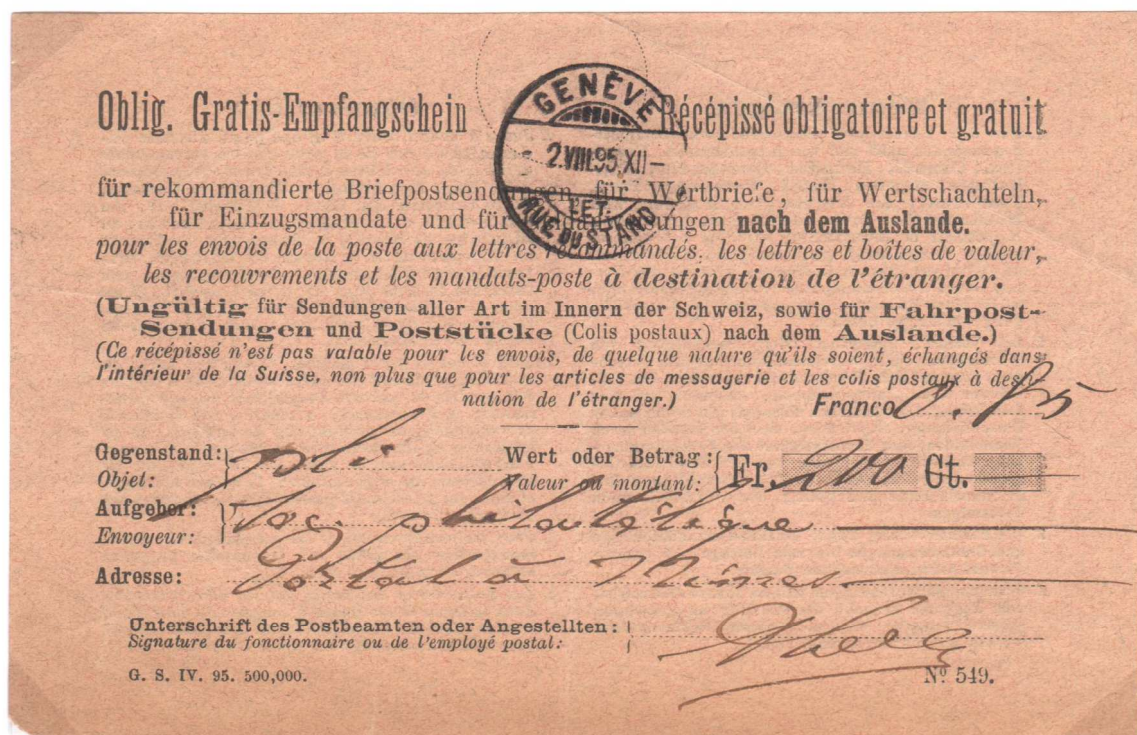 GENÈVE
2.VIII.95.XII
LET.
RUE DU STAND
Oblig. Gratis-Empfangschein Récépissé obligatoire et gratuit
für rekommandierte Briefpostsendungen, für Wertbriefe, für Wertschachteln,
für Einzugsmandate und für Geldanweisungen nach dem Auslande.
pour les envois de la poste aux lettres recommandés, les lettres et boîtes de valeur,
les recouvrements et les mandats-poste à destination de l'étranger.
(Ungültig für Sendungen aller Art im Innern der Schweiz, sowie für Fahrpost-
Sendungen und Poststücke (Colis postaux) nach dem Auslande.)
(Ce récépissé n'est pas valable pour les envois, de quelque nature qu'ils soient, échangés dans
l'intérieur de la Suisse, non plus que pour les articles de messagerie et les colis postaux à desti-
nation de l'étranger.) Franco 0.85
Gegenstand: pli Wert oder Betrag: Fr. 200 Ct.
Objet: Valeur ou montant:
Aufgeber: Soc. philatélique
Envoyeur:
Adresse: Postal à Nîmes
Unterschrift des Postbeamten oder Angestellten:
Signature du fonctionnaire ou de l'employé postal:
G. S. IV. 95. 500,000. Nº 549.